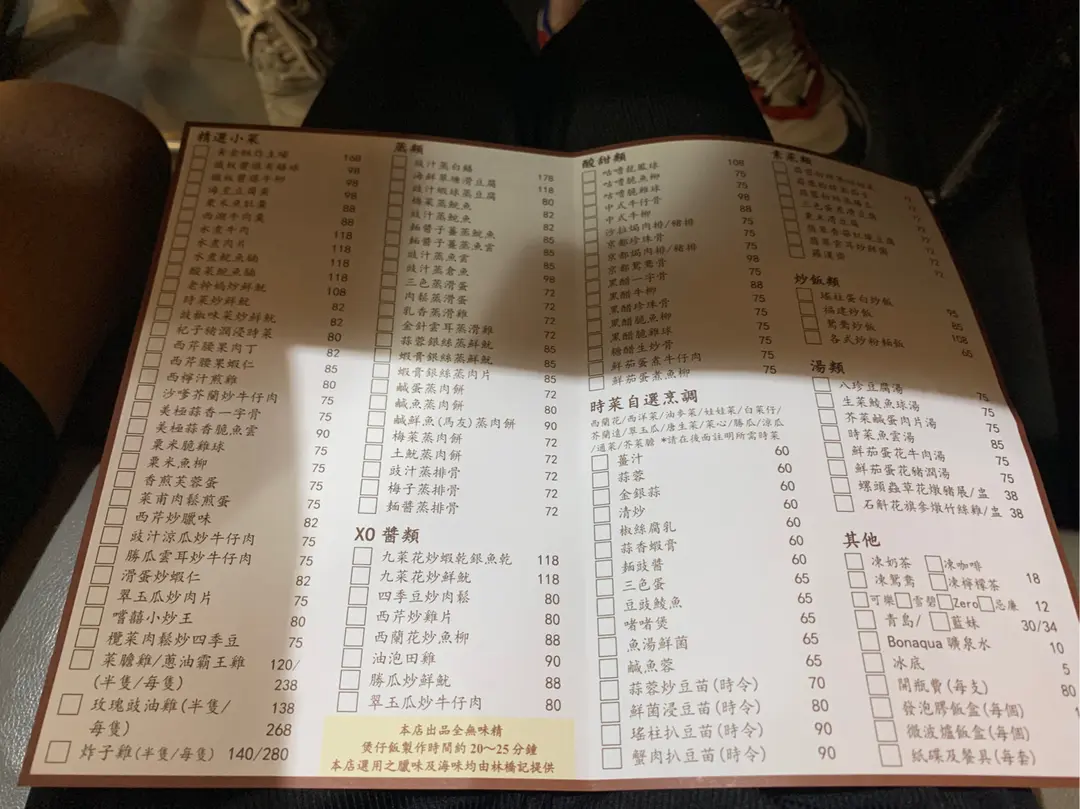 精選小菜
168
98
98
98
88
88
水煮牛肉 118
水煮肉片 118
水煮鯇魚腩 118
酸菜鯇魚腩 118
108
時菜炒鮮魷 82
豉椒味菜炒鮮魷 82
杞子豬潤浸時菜 80
西芹腰果肉丁 82
西芹腰果蝦仁 85
西檸汁煎雞 80
沙嗲芥蘭炒牛仔肉 75
美極蒜香一字骨 75
美極蒜香脆魚雲 90
粟米脆雞球 75
粟米魚柳 75
香煎芙蓉蛋 75
菜甫肉鬆煎蛋 75
西芹炒臘味 82
豉汁涼瓜炒牛仔肉 75
勝瓜雲耳炒牛仔肉 75
滑蛋炒蝦仁 82
翠玉瓜炒肉片 75
嚐囍小炒王 80
欖菜肉鬆炒四季豆 75
菜膽雞/蔥油霸王雞 120/
(半隻/每隻) 238
玫瑰豉油雞(半隻/ 138
每隻) 268
炸子雞(半隻/每隻) 140/280
蒸類
豉汁蒸白鱔 178
海鮮翠塘滑豆腐 118
豉汁蝦球蒸豆腐 80
欖菜蒸鯇魚 82
豉汁蒸鯇魚 82
麵醬子薑蒸鯇魚 85
麵醬子薑蒸魚雲 85
豉汁蒸魚雲 85
豉汁蒸倉魚 72
三色蒸滑蛋 72
肉鬆蒸滑蛋 72
乳香蒸滑雞 72
金針雲耳蒸滑雞 85
蒜蓉銀絲蒸鮮魷 85
蝦膏銀絲蒸鮮魷 72
蝦膏銀絲蒸肉片 72
鹹蛋蒸肉餅 80
鹹魚蒸肉餅 90
鹹鮮魚(馬友)蒸肉餅 72
梅菜蒸肉餅 72
土魷蒸肉餅 72
豉汁蒸排骨 72
梅子蒸排骨 72
麵醬蒸排骨
XO 醬類
九菜花炒蝦乾銀魚乾 118
九菜花炒鮮魷 118
四季豆炒肉鬆 80
西芹炒雞片 80
西蘭花炒魚柳 88
油泡田雞 90
勝瓜炒鮮魷 88
翠玉瓜炒牛仔肉 80
本店出品全無味精
煲仔飯製作時間約 20～25 分鐘
本店選用之臘味及海味均由林橋記提供
酸甜類
咕嚕龍脷球 108
咕嚕脆魚柳 75
咕嚕脆雞球 75
中式牛仔骨 98
中式牛柳 88
沙拉焗肉排/豬排 75
京都珍珠骨 75
京都焗肉排/豬排 75
京都鴛鴦骨 98
黑醋一字骨 75
黑醋牛柳 88
黑醋珍珠骨 75
黑醋脆魚柳 75
黑醋脆雞球 75
糖醋生炒骨 75
鮮茄蛋煮牛仔肉 75
鮮茄蛋煮魚柳 75
時菜自選烹調
西蘭花/西洋菜/油麥菜/娃娃菜/白菜仔/
芥蘭遠/翠玉瓜/唐生菜/菜心/勝瓜/涼瓜
/通菜/芥菜膽 *請在後面註明所需時菜
薑汁 60
蒜蓉 60
金銀蒜 60
清炒 60
椒絲腐乳 60
蒜香蝦膏 60
麵豉醬 60
三色蛋 65
豆豉鯪魚 65
啫啫煲 65
魚湯鮮菌 65
鹹魚蓉 65
蒜蓉炒豆苗(時令) 70
鮮菌浸豆苗(時令) 80
瑤柱扒豆苗(時令) 90
蟹肉扒豆苗(時令) 90
素菜類
三色蛋水滑豆腐
粟米滑豆腐
羅漢齋 72
炒飯類
瑤柱蛋白炒飯 95
福建炒飯 85
鴛鴦炒飯 108
各式炒粉麵飯 65
湯類
八珍豆腐湯 75
生菜鯪魚球湯 75
芥菜鹹蛋肉片湯 75
時菜魚雲湯 85
鮮茄蛋花牛肉湯 75
鮮茄蛋花豬潤湯 75
螺頭蟲草花燉豬𦟌/盅 38
石斛花旗參燉竹絲雞/盅 38
其他
凍奶茶 凍咖啡
凍鴛鴦 凍檸檬茶 18
可樂 雪碧 Zero 忌廉 12
青島/ 藍妹 30/34
Bonaqua 礦泉水 10
冰底 5
開瓶費(每支) 80
發泡膠飯盒(每個)
微波爐飯盒(每個)
紙碟及餐具(每套)